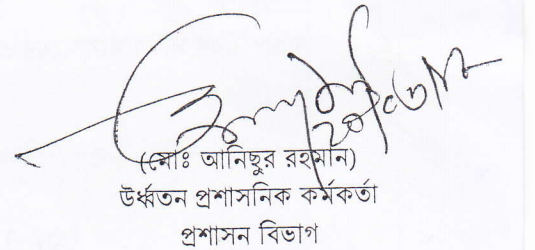 (মোঃ আনিছুর রহমান)
উর্ধ্বতন প্রশাসনিক কর্মকর্তা
প্রশাসন বিভাগ